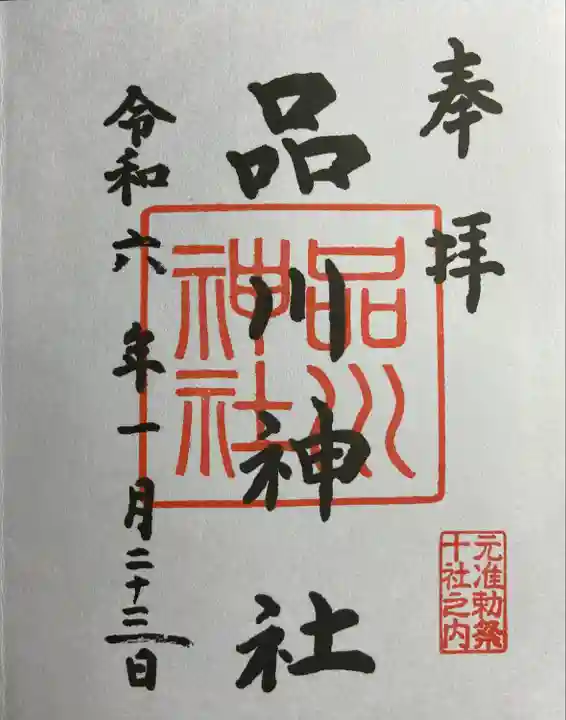 奉拝
品川神社
品川
神社
令和六年一月二十三日
元准勅祭
十社之内